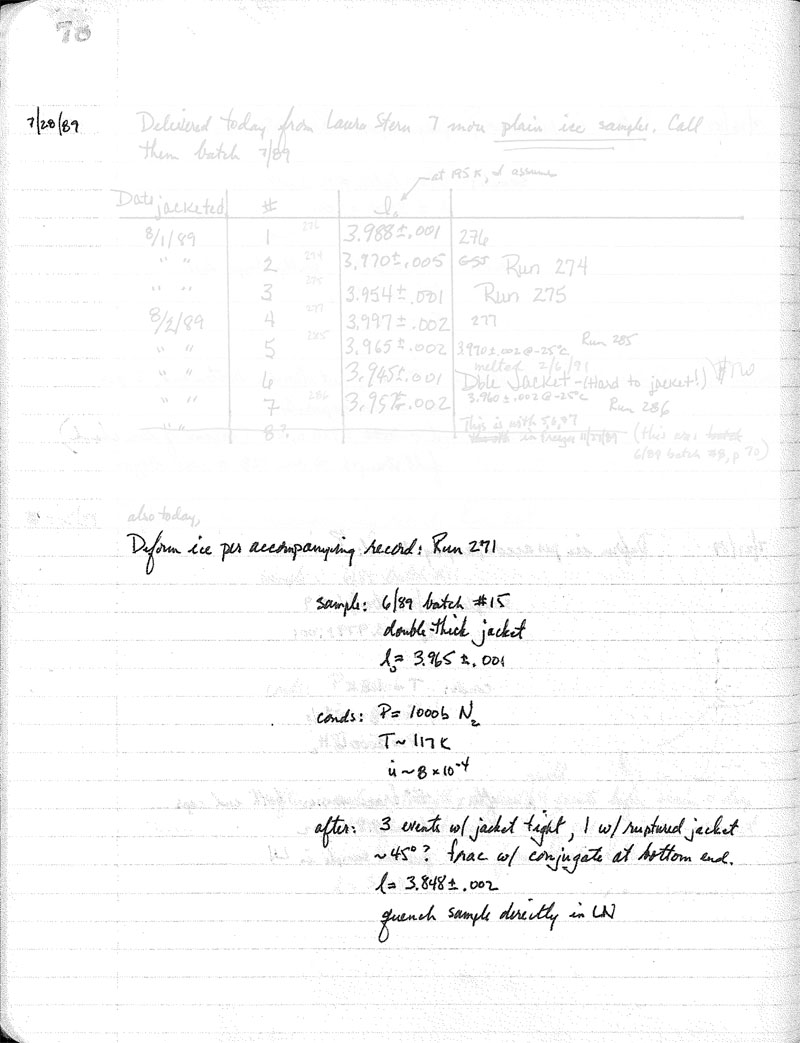 78
7/28/89 Delivered today from Laura Stern 7 more plain ice samples. Call
them batch 7/89
at 195 K, I assume
Date jacketed # l₀
8/1/89 1 276 3.988 ± .001 276
" " 2 274 3.970 ± .005 Run 274
" " 3 275 3.954 ± .001 Run 275
8/2/89 4 277 3.997 ± .002 277
" " 5 285 3.965 ± .002 3.970 ± .002 @ -25°C Run 285
melted 2/6/91
" " 6 3.945 ± .001 Dble Jacket - (Hard to jacket!)
3.960 ± .002 @ -25°C
" " 7 286 3.957 ± .002 Run 286
This is with 5,6,87
" " 8? in Freezer 11/27/89 (this was batch
6/89 batch #8, p 70)
also today,
Deform ice per accompanying record: Run 271
sample: 6/89 batch #15
double-thick jacket
l₀ = 3.965 ± .001
conds: P = 1000b N₂
T ~ 117 K
u̇ ~ 8 × 10⁻⁴
after: 3 events w/ jacket tight, 1 w/ ruptured jacket
~45°? frac w/ conjugate at bottom end.
l = 3.848 ± .002
quench sample directly in LN